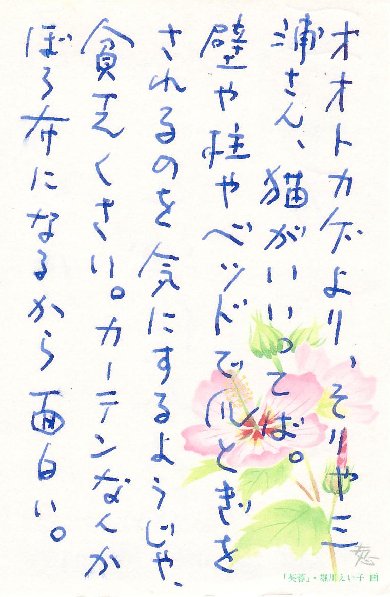 オオトカゲより、そりや三
浦さん、猫がいいってば。
壁や柱やベッドで爪とぎを
されるのを気にするようじゃ、
貧乏くさい。カーテンなんか
ぼろ布になるから面白い。
「芙蓉」・堀川えい子 画